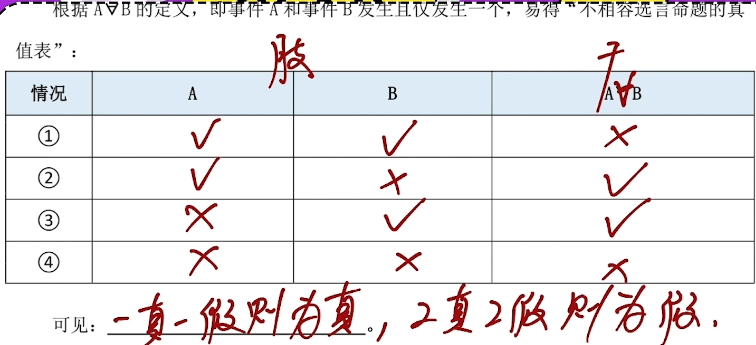 根据 A∀B 的定义，即事件 A 和事件 B 发生且仅发生一个，易得“不相容选言命题的真
值表”：
肢 干
情况 A B A∀B
① ✓ ✓ ×
② ✓ × ✓
③ × ✓ ✓
④ × × ×
可见：一真一假则为真。，2真2假则为假.